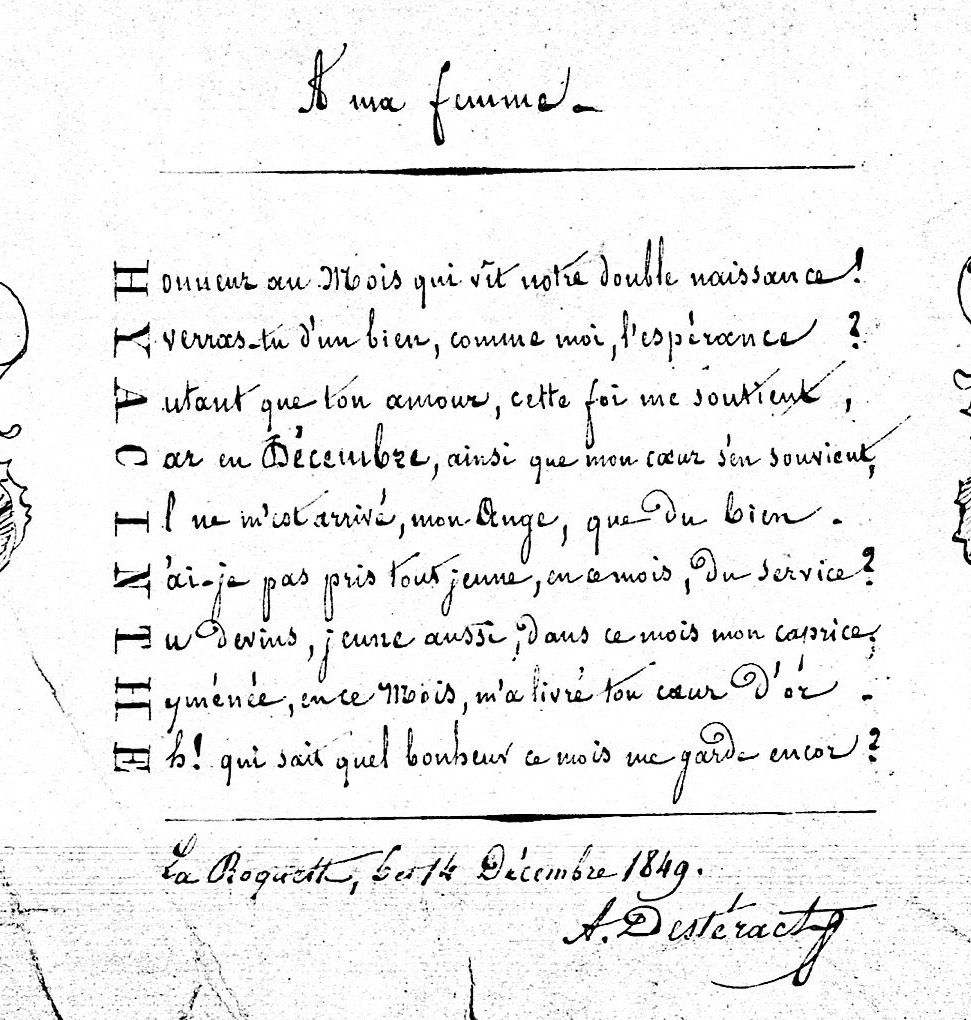 A ma femme.
Honneur au Mois qui vît notre double naissance !
Yverras-tu d'un bien, comme moi, l'espérance ?
Autant que ton amour, cette foi me soutient,
Car en Décembre, ainsi que mon cœur s'en souvient,
Il ne m'est arrivé, mon Ange, que du bien.
N'ai-je pas pris tout jeune, en ce mois, du service ?
Tu devins, jeune aussi, dans ce mois mon caprice;
Hyménée, en ce Mois, m'a livré ton cœur d'ór.
Eh! qui sait quel bonheur ce mois me garde encor ?
La Roquette, 14 Décembre 1849.
A. Destéract